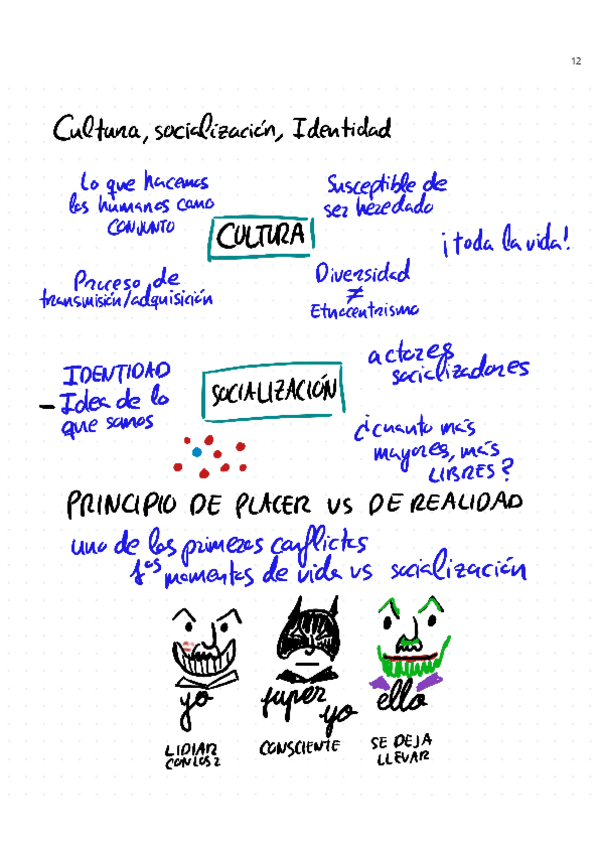 12
Cultura, socialización, Identidad
Lo que hacemos
los humanos como
CONJUNTO
Susceptible de
ser heredado
CULTURA
¡toda la vida!
Proceso de
transmisión/adquisición
Diversidad
≠
Etnocentrismo
IDENTIDAD
- Idea de lo
que somos
SOCIALIZACIÓN
actores
socializadores
¿cuanto más
mayores, más
LIBRES?
PRINCIPIO DE PLACER VS DE REALIDAD
uno de los primeros conflictos
1os momentos de vida vs socialización
yo
super
yo
ello
LIDIAR
CON LOS 2
CONSCIENTE
SE DEJA
LLEVAR